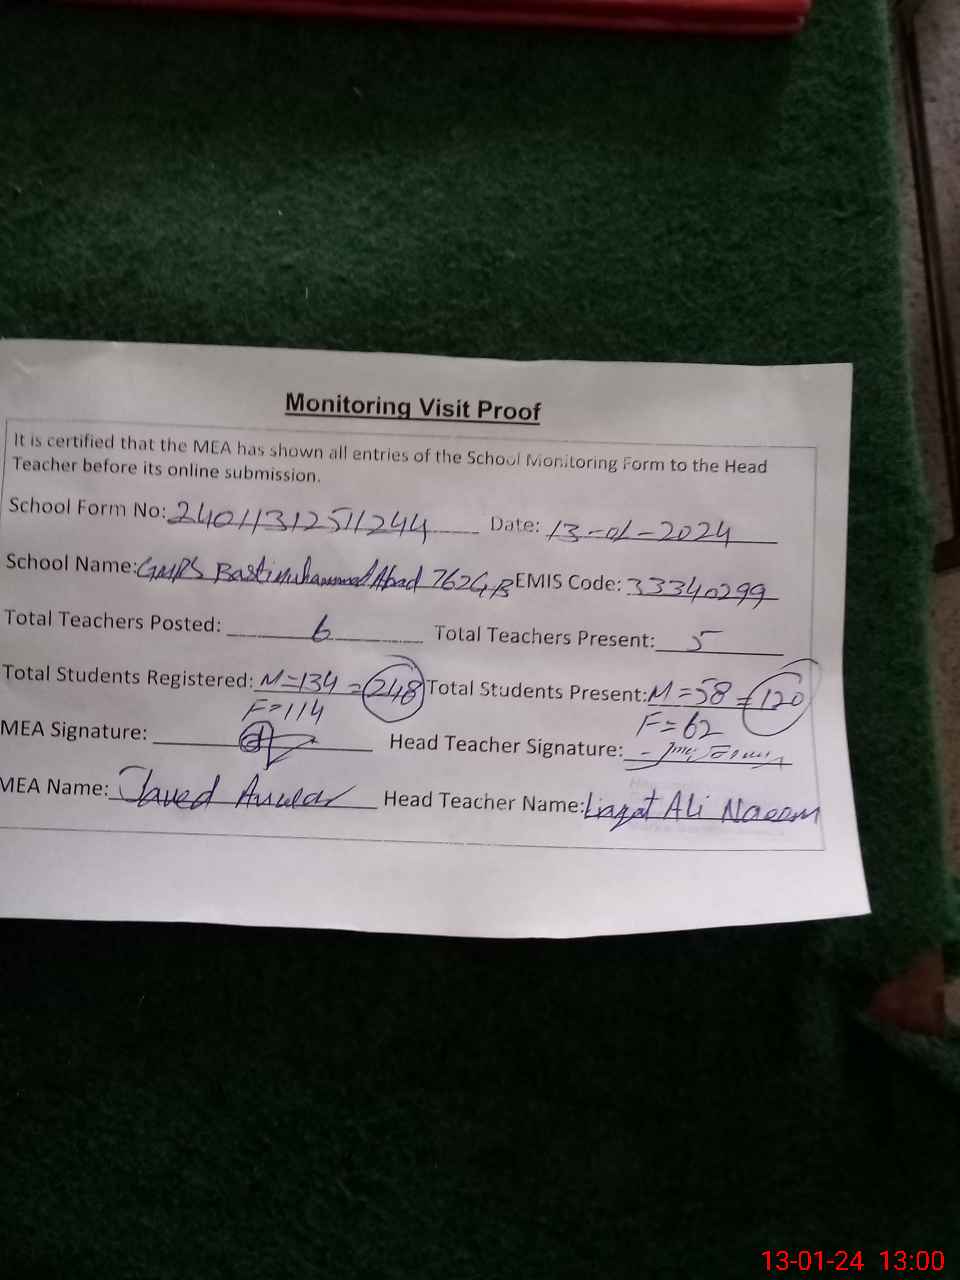 Monitoring Visit Proof
It is certified that the MEA has shown all entries of the School Monitoring Form to the Head
Teacher before its online submission.
School Form No: 24011312511244 Date: 13-01-2024
School Name: GMPS Basti Muhammad Abad 762GB EMIS Code: 33340299
Total Teachers Posted: 6 Total Teachers Present: 5
Total Students Registered: M=134 =248 Total Students Present: M=58 =120
F=114 F=62
MEA Signature: Head Teacher Signature:
MEA Name: Javed Head Teacher Name: Liaqat Ali Naeem
13-01-24 13:00